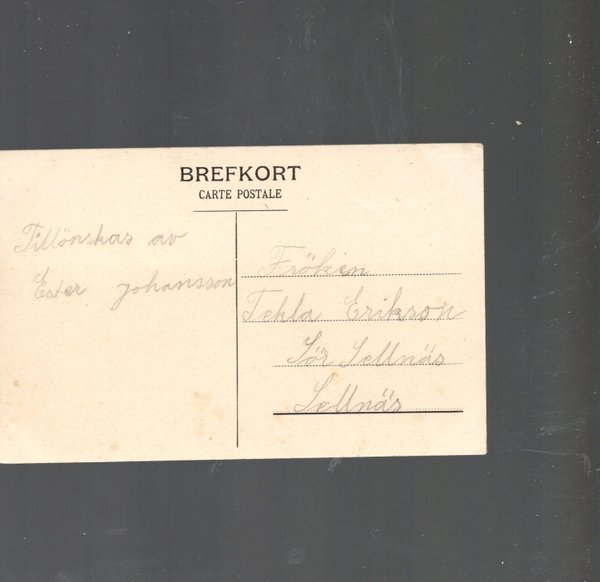 BREFKORT
CARTE POSTALE
Tillönskas av
Ester Johansson
Fröken
Tekla Erikson
Sör Sellnäs
Sellnäs